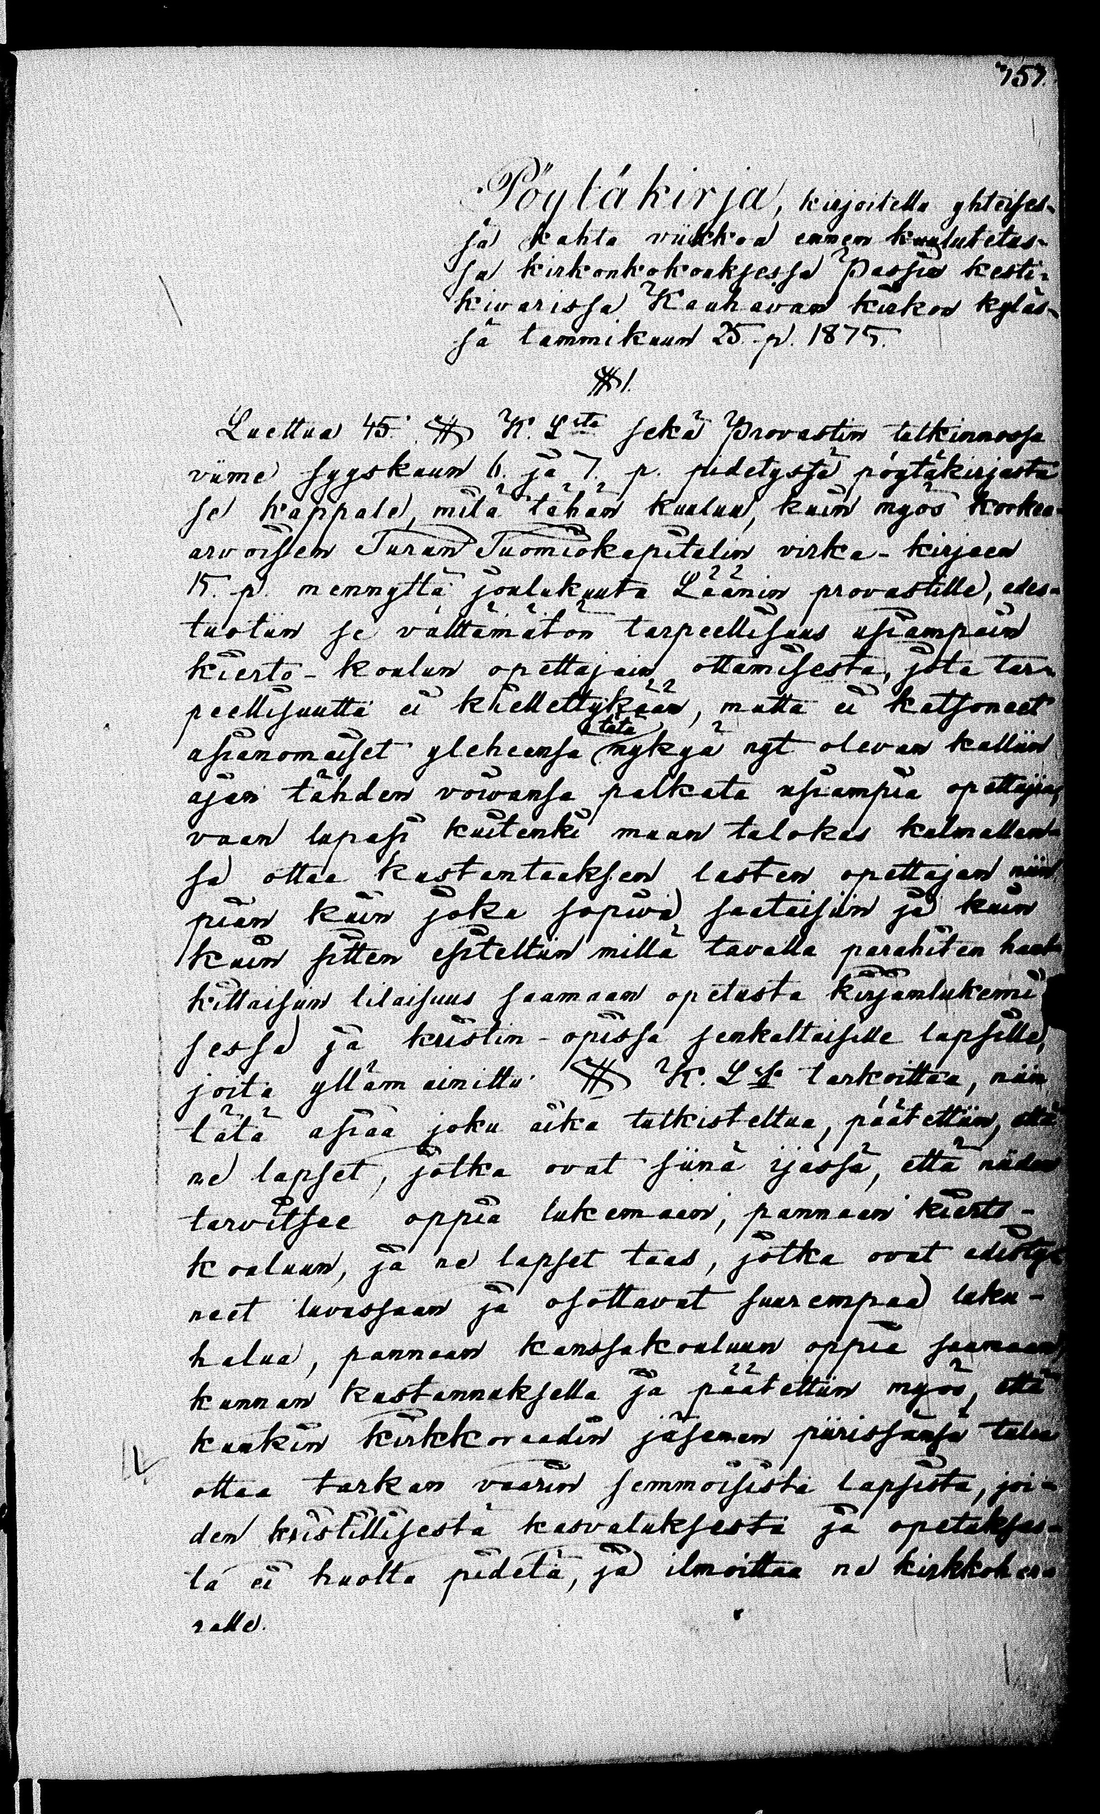 757.
Pöytäkirja, kirjoitettu yhteises-
sä kahta viikkoa ennen kuulutetus-
sa kirkonkokouksessa Passin kesti-
kivarissa Kauhavan kirkon kyläs-
sä tammikuun 25. p. 1875.
§ 1.
Luettua 45. § K. Lsta sekä Provastin tutkinnossa
viime syyskuun 6. ja 7. p. pidetystä pöytäkirjasta
se kappale, mitä tähän kuuluu, kuin myös korkea-
arvoisen Turun Tuomiokapitalin virka-kirjeen
15. p. mennyttä joulukuuta Läänin provastille, edes-
tuotiin se välttämätön tarpeellisuus usiampain
kierto-koulun opettajain ottamisesta, jota tar-
peellisuutta ei kiellettykään, mutta ei katsoneet
asianomaiset yleheensä tätä nykyä nyt olevan kalliin
ajan tähden voivansa palkata usiampia opettajia,
vaan lupasi kuitenki muan talokas kulmallan-
sa ottaa kustantaaksen lasten opettajan niin
pian kuin joku sopiva saataisiin ja kuin
kuin sitten esiteltiin millä tavalla parahiten han-
kittaisiin tilaisuus saamaan opetusta kirjanlukemi
sessa ja kristin-opissa senkaltaisille lapsille,
joita ylläm ainittu § K. Lssa tarkoittaa, niin
tätä asiaa joku aika tutkisteltua, päätettiin, että
ne lapset, jotka ovat siinä ijässä, että niiden
tarvitsee oppia lukemaan, pannaan kierto-
kouluun, ja ne lapset taas, jotka ovat edisty-
neet luvussaan ja osottavat suurempaa luku-
halua, pannaan kansakouluun oppia saamaan,
kunnan kustannuksella ja päätettiin myös, että
kunkin kirkkoraadin jäsenen piirissänsä tulee
ottaa tarkan vaarin semmoisista lapsista, joi-
den kristillisestä kasvatuksesta ja opetukses-
ta ei huolta pidetä, ja ilmoittaa ne kirkkoher-
ralle.